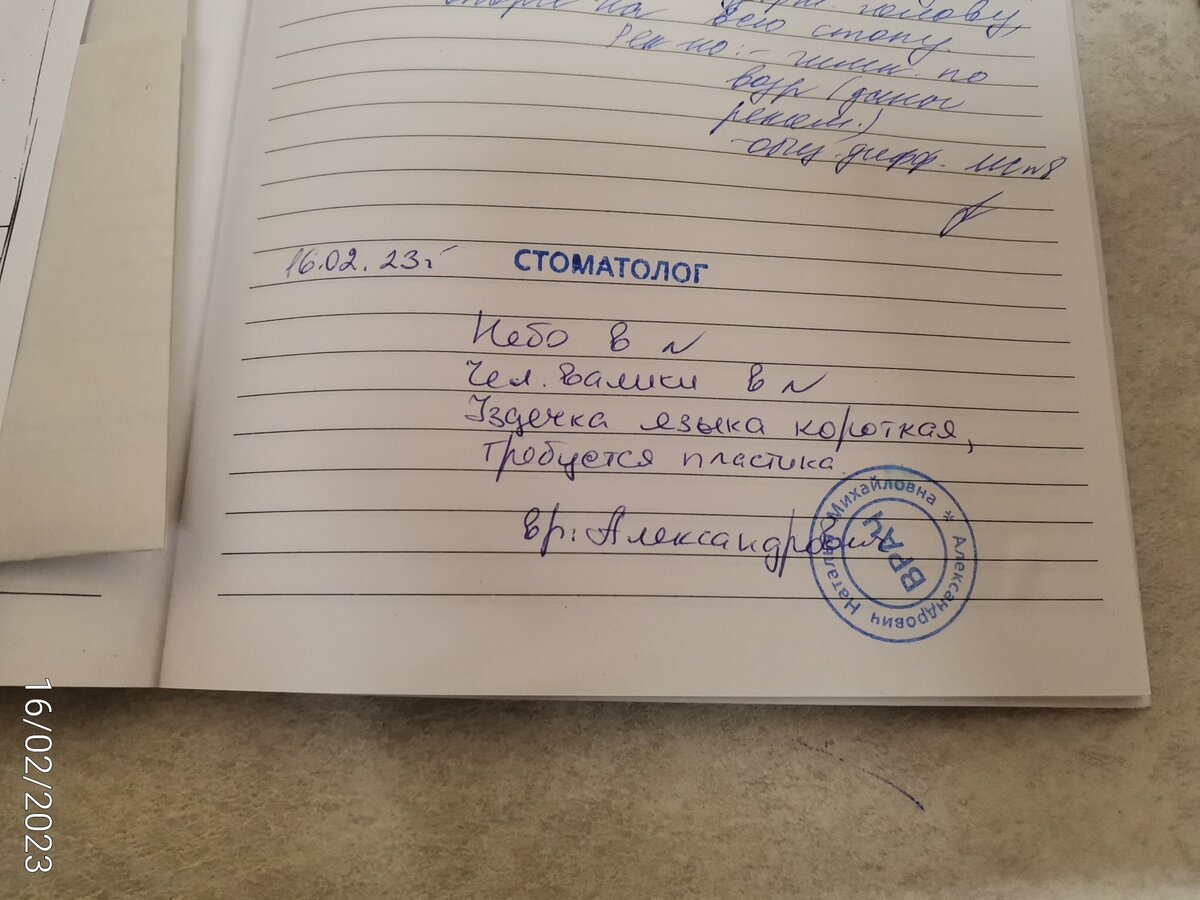 голову,
на всю стопу.
Рек-но: - гимн. по
возр (даны
реком.)
16.02.23г СТОМАТОЛОГ
Небо в N
Чел. валики в N
Уздечка языка короткая,
требуется пластика.
вр: Александрович
Александрович Наталья Михайловна *
ВРАЧ
16/02/2023